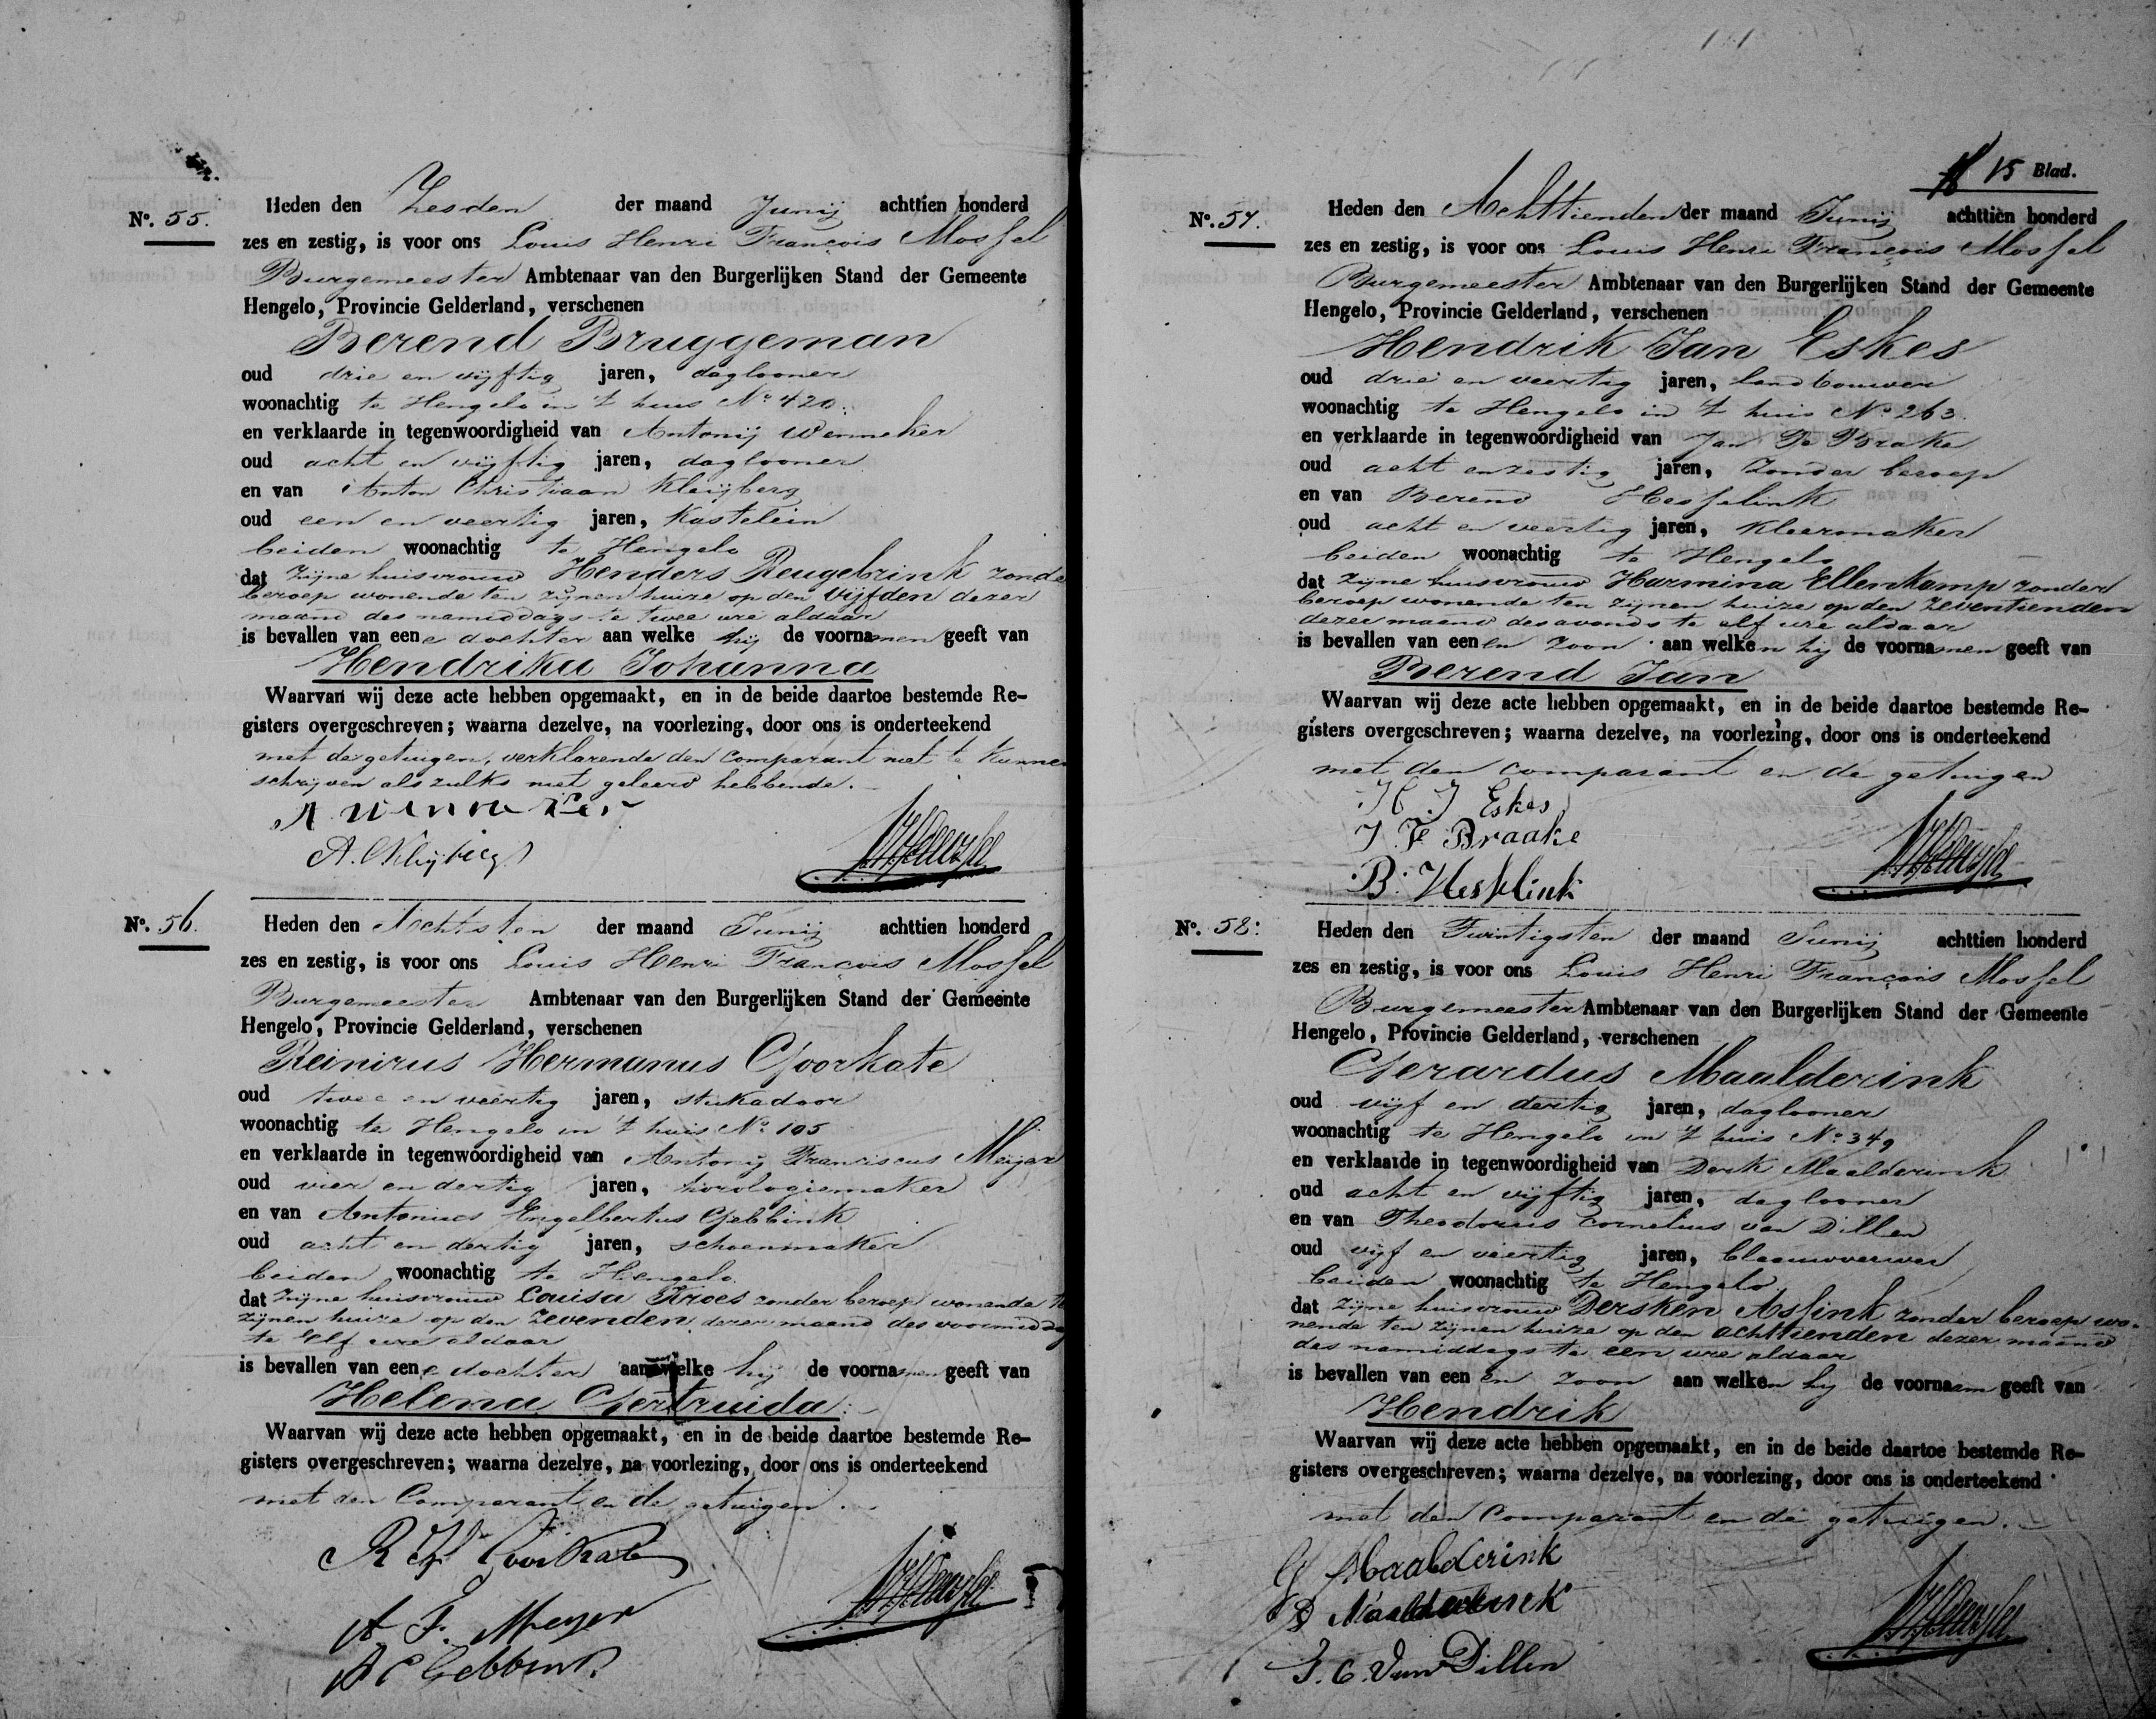 No. 55.
Heden den Zesden der maand Junij achttien honderd
zes en zestig, is voor ons Louis Henri François Mossel
Burgemeester Ambtenaar van den Burgerlijken Stand der Gemeente
Hengelo, Provincie Gelderland, verschenen
Berend Bruggeman
oud drie en vijftig jaren, daglooner
woonachtig te Hengelo in 't huis No 420.
en verklaarde in tegenwoordigheid van Antonij Wenneker
oud acht en vijftig jaren, daglooner
en van Anton Christiaan Kleijberg
oud een en veertig jaren, Kastelein
beiden woonachtig te Hengelo
dat zijne huisvrouw Henders Reugebrink zonde
beroep wonende ten zijnen huize op den vijfden dezer
maand des namiddags te twee ure aldaar
is bevallen van eene dochter aan welke hij de voornamen geeft van
Hendrika Johanna
Waarvan wij deze acte hebben opgemaakt, en in de beide daartoe bestemde Re-
gisters overgeschreven; waarna dezelve, na voorlezing, door ons is onderteekend
met de getuigen, verklarende den Comparant niet te kunnen
schrijven als zulks niet geleerd hebbende.
A Wenneker
A. C Kleijberg
No. 56.
Heden den Achtsten der maand Junij achttien honderd
zes en zestig, is voor ons Louis Henri François Mossel
Burgemeester Ambtenaar van den Burgerlijken Stand der Gemeente
Hengelo, Provincie Gelderland, verschenen
Reinirus Hermanus Goorkate
oud twee en veertig jaren, stukadoor
woonachtig te Hengelo in 't huis No 105
en verklaarde in tegenwoordigheid van Antonij Franciscus Meijer
oud vier en dertig jaren, horologiemaker
en van Antonius Engelbertus Gebbink
oud acht en dertig jaren, schoenmaker
beiden woonachtig te Hengelo
dat zijne huisvrouw Louisa Kroes zonder beroep wonende te
zijnen huize op den zevenden dezer maand des voormiddag
te elf ure aldaar
is bevallen van eene dochter aan welke hij de voornamen geeft van
Helena Gertruida
Waarvan wij deze acte hebben opgemaakt, en in de beide daartoe bestemde Re-
gisters overgeschreven; waarna dezelve, na voorlezing, door ons is onderteekend
met den Comparant en de getuigen.
R H Goorkate
A F. Meyer
A E Gebbink
15 Blad.
No. 57.
Heden den Achttienden der maand Junij achttien honderd
zes en zestig, is voor ons Louis Henri François Mossel
Burgemeester Ambtenaar van den Burgerlijken Stand der Gemeente
Hengelo, Provincie Gelderland, verschenen
Hendrik Jan Eskes
oud drie en veertig jaren, landbouwer
woonachtig te Hengelo in 't huis No 263.
en verklaarde in tegenwoordigheid van Jan Te Brake
oud acht en zestig jaren, zonder beroep
en van Berend Hesselink
oud acht en veertig jaren, Kleermaker
beiden woonachtig te Hengelo
dat zijne huisvrouw Harmina Ellenkamp zonder
beroep wonende ten zijnen huize op den zeventienden
dezer maand des avonds te elf ure aldaar
is bevallen van eenen zoon aan welken hij de voornamen geeft van
Berend Jan
Waarvan wij deze acte hebben opgemaakt, en in de beide daartoe bestemde Re-
gisters overgeschreven; waarna dezelve, na voorlezing, door ons is onderteekend
met den comparant en de getuigen
H J Eskes
J Te Braake
B. Hesselink
No. 58.
Heden den Twintigsten der maand Junij achttien honderd
zes en zestig, is voor ons Louis Henri François Mossel
Burgemeester Ambtenaar van den Burgerlijken Stand der Gemeente
Hengelo, Provincie Gelderland, verschenen
Gerardus Maalderink
oud vijf en dertig jaren, daglooner
woonachtig te Hengelo in 't huis No 349
en verklaarde in tegenwoordigheid van Derk Maalderink
oud acht en vijftig jaren, daglooner
en van Theodorus Cornelius van Dillen
oud vijf en veertig jaren, blaauwverwer
beiden woonachtig te Hengelo
dat zijne huisvrouw Dersken Assink zonder beroep wo-
nende ten zijnen huize op den achttienden dezer maand
des namiddags te een ure aldaar
is bevallen van eenen zoon aan welken hij de voornaam geeft van
Hendrik
Waarvan wij deze acte hebben opgemaakt, en in de beide daartoe bestemde Re-
gisters overgeschreven; waarna dezelve, na voorlezing, door ons is onderteekend
met den Comparant en de getuigen.
G Maalderink
D Maalderink
T. C. Van Dillen